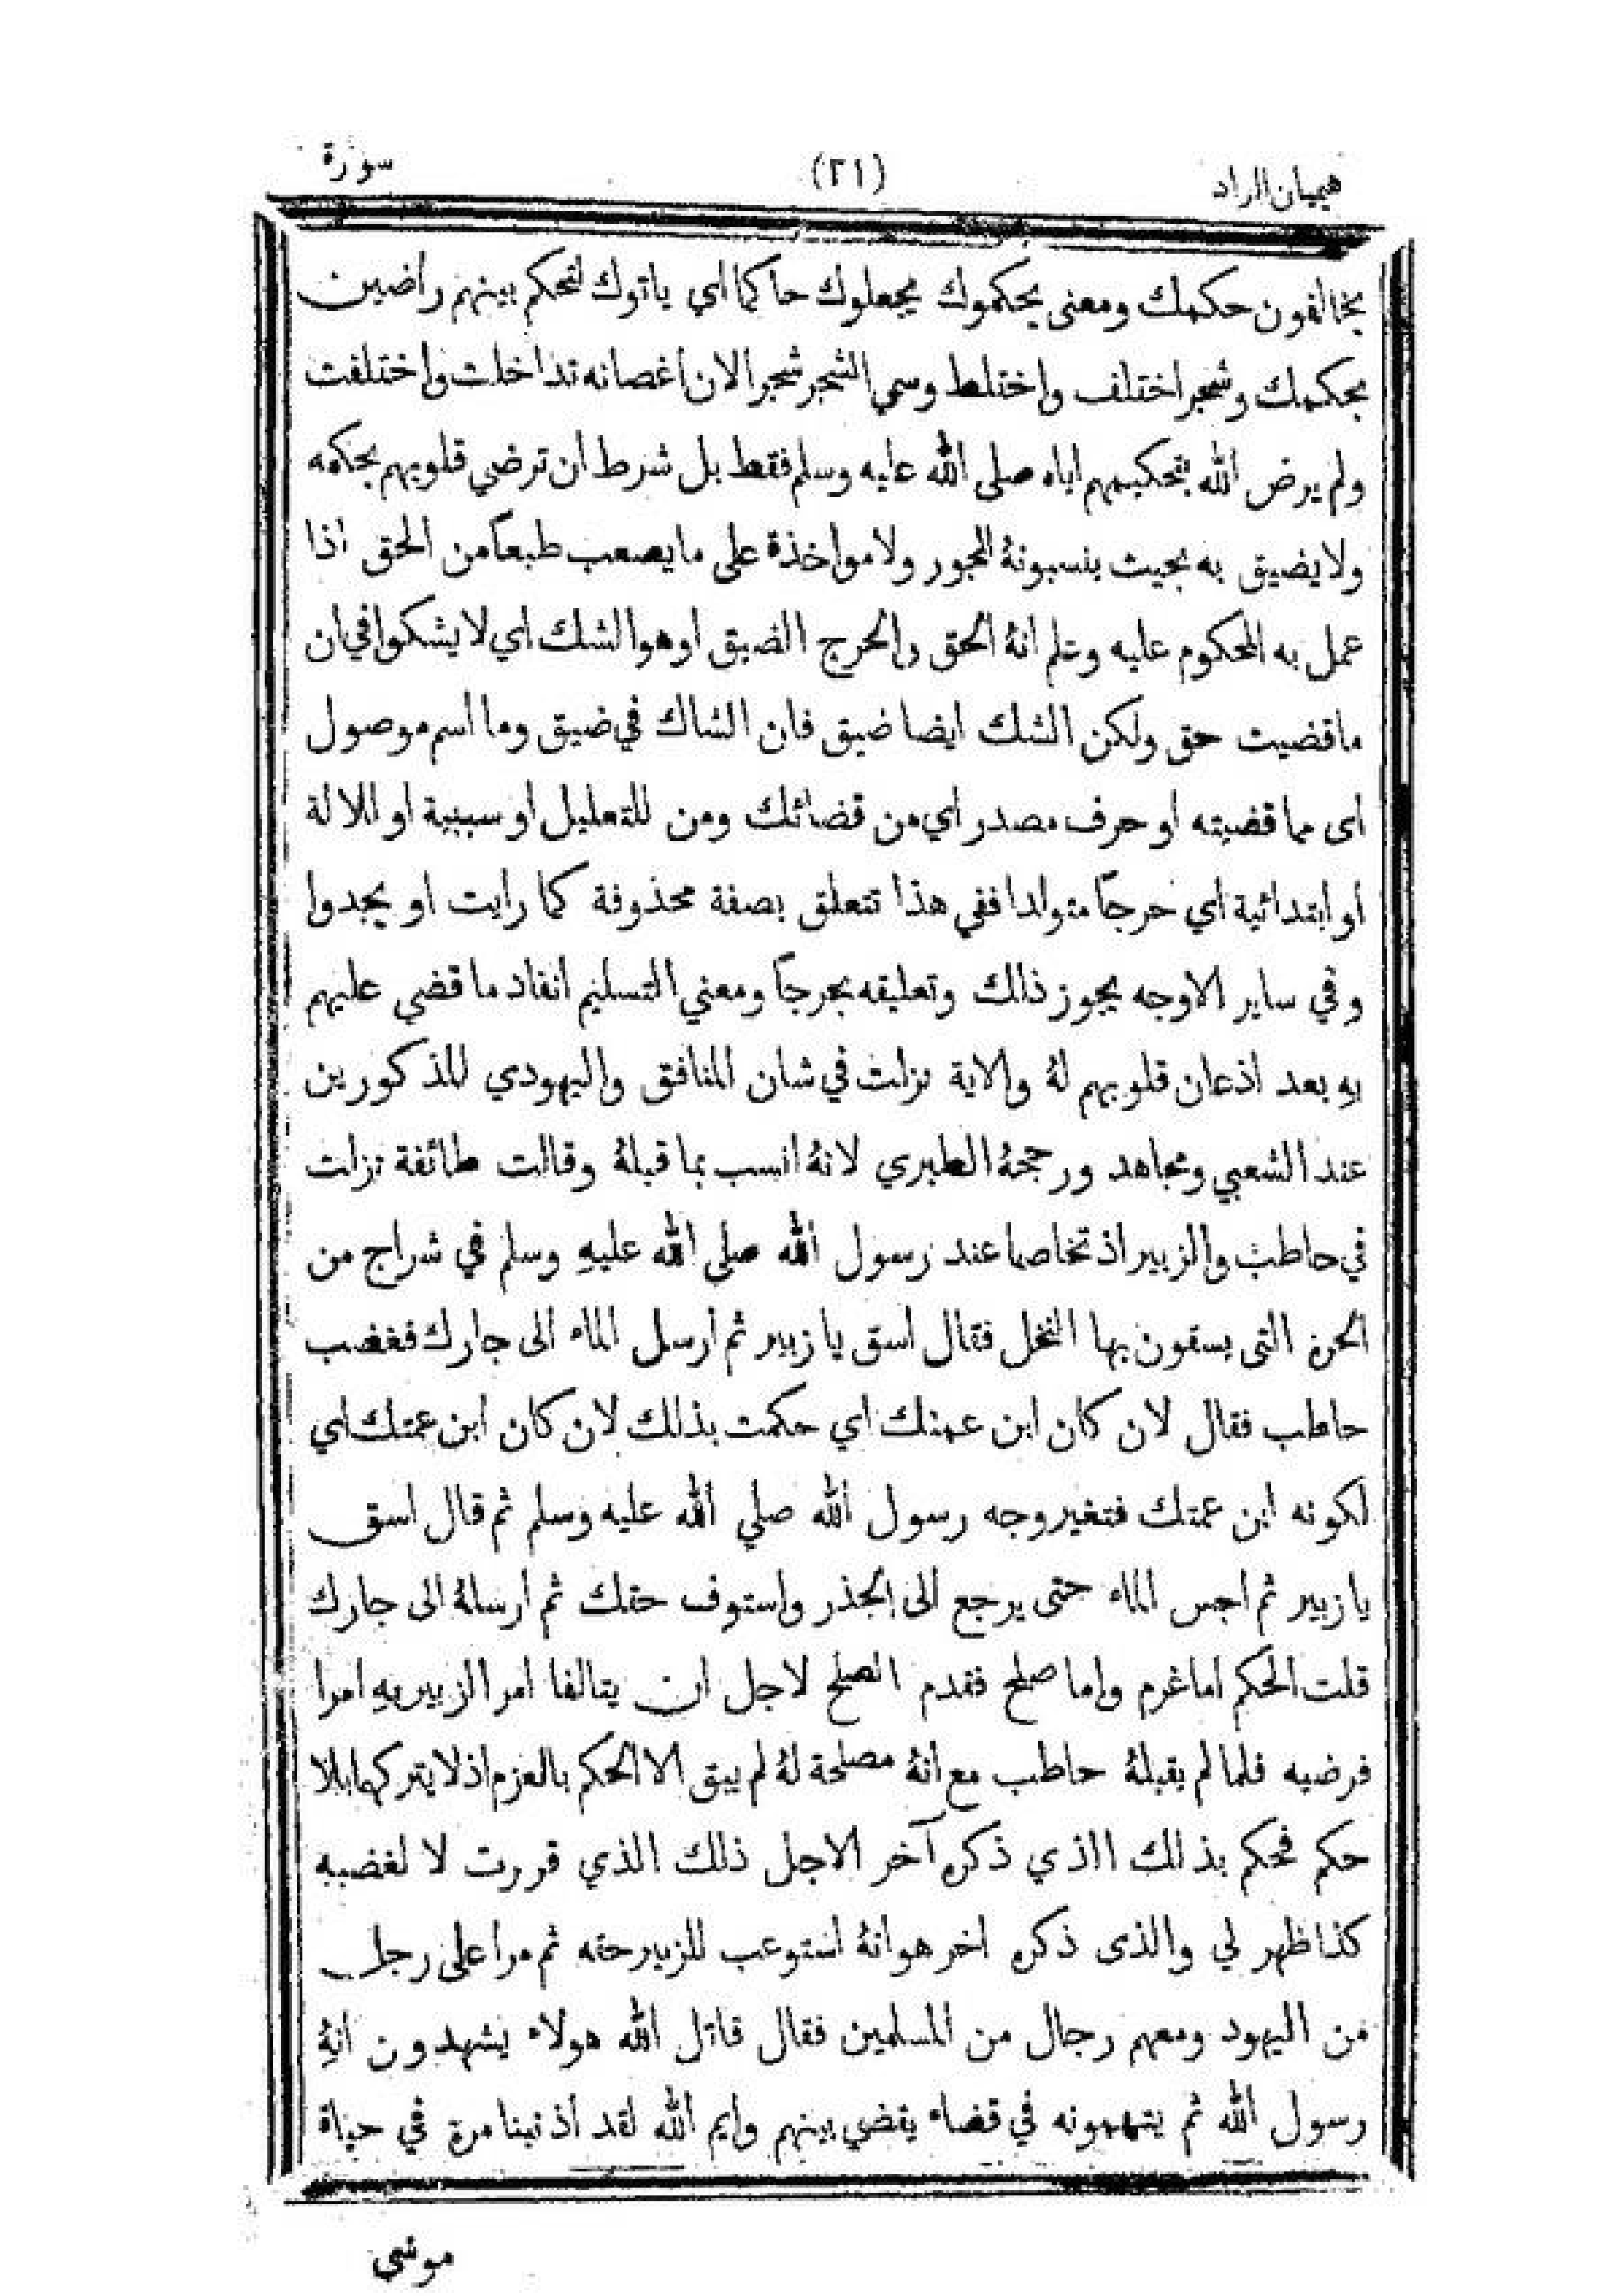 هيميان الزاد (٢١) سورة
يخالفون حكمك ومعنى يحكموك يجعلوك حاكما اي ياتوك لتحكم بينهم راضين
بحكمك وشجر اختلف واختلط وسمي الشجر شجرا لان أغصانه تداخلت واختلفت
ولم يرض الله بتحكيمهم اياه صلى الله عليه وسلم فقط بل شرط ان ترضي قلوبهم بحكمه
ولا يضيق به بحيث ينسبونهُ للجور ولا مواخذة على ما يصعب طبعاً من الحق اذا
عمل به المحكوم عليه وعلم انهُ الحق والحرج الضيق او هو الشك اي لا يشكوا في ان
ما قضيت حق ولكن الشك ايضا ضيق فان الشاك في ضيق وما اسم موصول
اى مما قضيته او حرف مصدر اي من قضائك ومن للتعليل او سببية او للالة
أو ابتدائية اي حرجاً متولدا ففي هذا تتعلق بصفة محذوفة كما رايت او يجدوا
وفي ساير الاوجه يجوز ذلك وتعليقه بحرجاً ومعني التسليم انفاد ما قضي عليهم
بهِ بعد اذعان قلوبهم لهُ والاية نزلت في شان المنافق واليهودي المذكورين
عند الشعبي ومجاهد ورجحهُ الطبري لانهُ انسب بما قبلهُ وقالت طائفة نزلت
في حاطب والزبير اذ تخاصما عند رسول الله صلى الله عليهِ وسلم في شراج من
الحرة التى يسقون بها النخل فقال اسق يا زبير ثم أرسل الماء الى جارك فغضب
حاطب فقال لان كان ابن عمتك اي حكمت بذلك لان كان ابن عمتك اي
لكونه ابن عمتك فتغير وجه رسول الله صلي الله عليه وسلم ثم قال اسق
يا زبير ثم احبس الماء حتى يرجع الى الجذر واستوف حقك ثم أرسلهُ الى جارك
قلت الحكم اما غرم واما صلح فقدم الصلح لاجل ان يتالفا امر الزبير بهِ امرا
فرضيه فلما لم يقبلهُ حاطب مع انهُ مصلحة لهُ لم يبق الا الحكم بالعزم اذ لا يتركهما بلا
حكم فحكم بذلك الذي ذكره آخر الاجل ذلك الذي قررت لا لغضبه
كذا ظهر لي والذى ذكره اخر هو انهُ استوعب للزبير حقه ثم مرا على رجل
من اليهود ومعهم رجال من المسلمين فقال قاتل الله هولاء يشهدون انهُ
رسول الله ثم يتهمونه في قضاء يقضي بينهم وايم الله لقد أذنبنا مرة في حياة
موسى